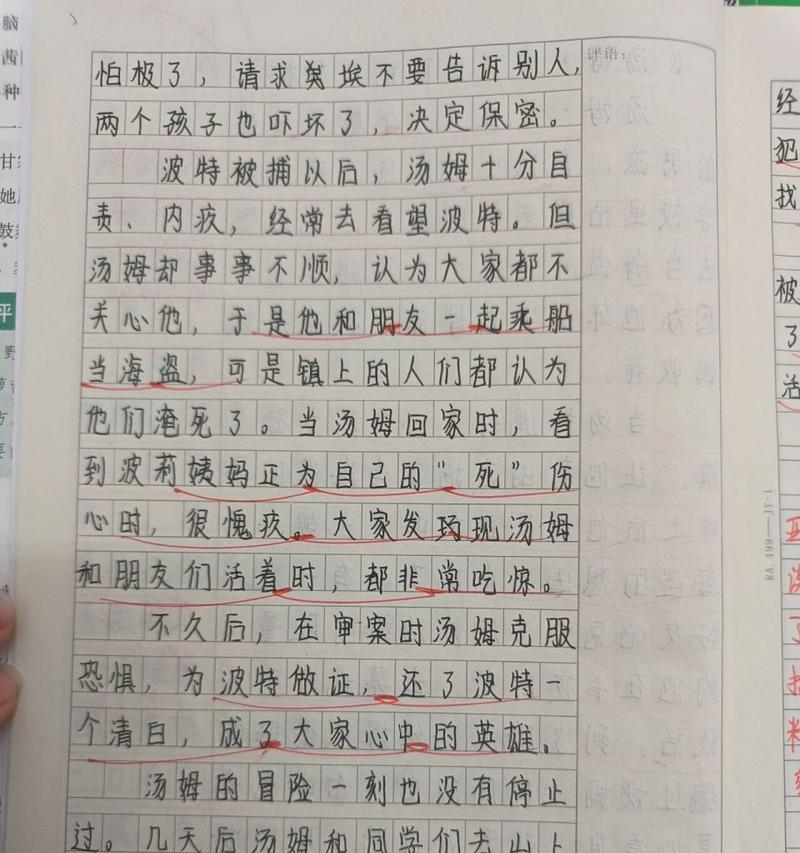 评语:
怕极了，请求奂埃不要告诉别人，
两个孩子也吓坏了，决定保密。
波特被捕以后，汤姆十分自
责、内疚，经常去看望波特。但
汤姆却事事不顺，认为大家都不
关心他，于是他和朋友一起乘船
当海盗，可是镇上的人们都认为
他们淹死了。当汤姆回家时，看
到波莉姨妈正为自己的"死"伤
心时，很愧疚。大家发现汤姆
和朋友们活着时，都非常吃惊。
不久后，在审案时汤姆克服
恐惧，为波特做证，还了波特一
个清白，成了大家心中的英雄。
汤姆的冒险一刻也没有停止
过。几天后汤姆和同学们去山上
经
犯
找
被
了
活
RA.499—JY-1
甘
她
鼓
平
野